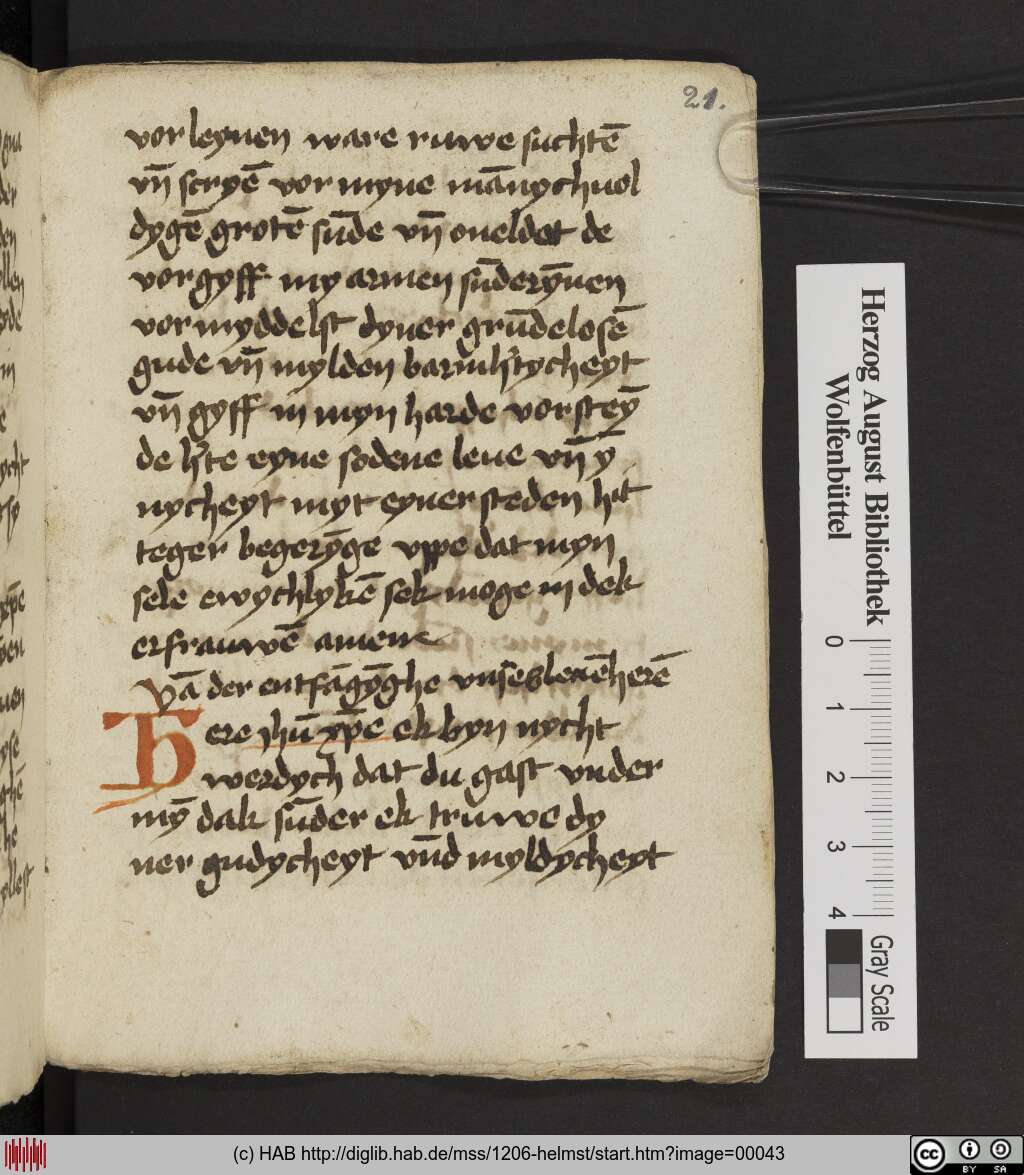 21.
vorleynen ware ruwe suchtē
vn̄ scryē vor myne mānychuol
dygē grotē sūde vn̄ oueldat de
vorgyff my armen sūderȳnen
vormyddelst dyner grūdelosē
gude vn̄ mylden barmh'tycheyt
vn̄ gyff in myn harde vorsteȳ
de h'te eyne sodene leue vn̄ ȳ
nycheyt myt eyner steden hit
teger begerȳge vppe dat myn
sele ewychlykē sek moge in dek
erfrauwē amen
Vā der entfāgȳghe vnses leuē herē
Here jhū xp̄e ek byn nycht
werdych dat du gast vnder
mȳ dak sūder ek truwe dy
ner gudycheyt vn̄d myldycheyt
Herzog August Bibliothek
Wolfenbüttel
0 1 2 3 4
Gray Scale
(c) HAB http://diglib.hab.de/mss/1206-helmst/start.htm?image=00043
cc BY SA